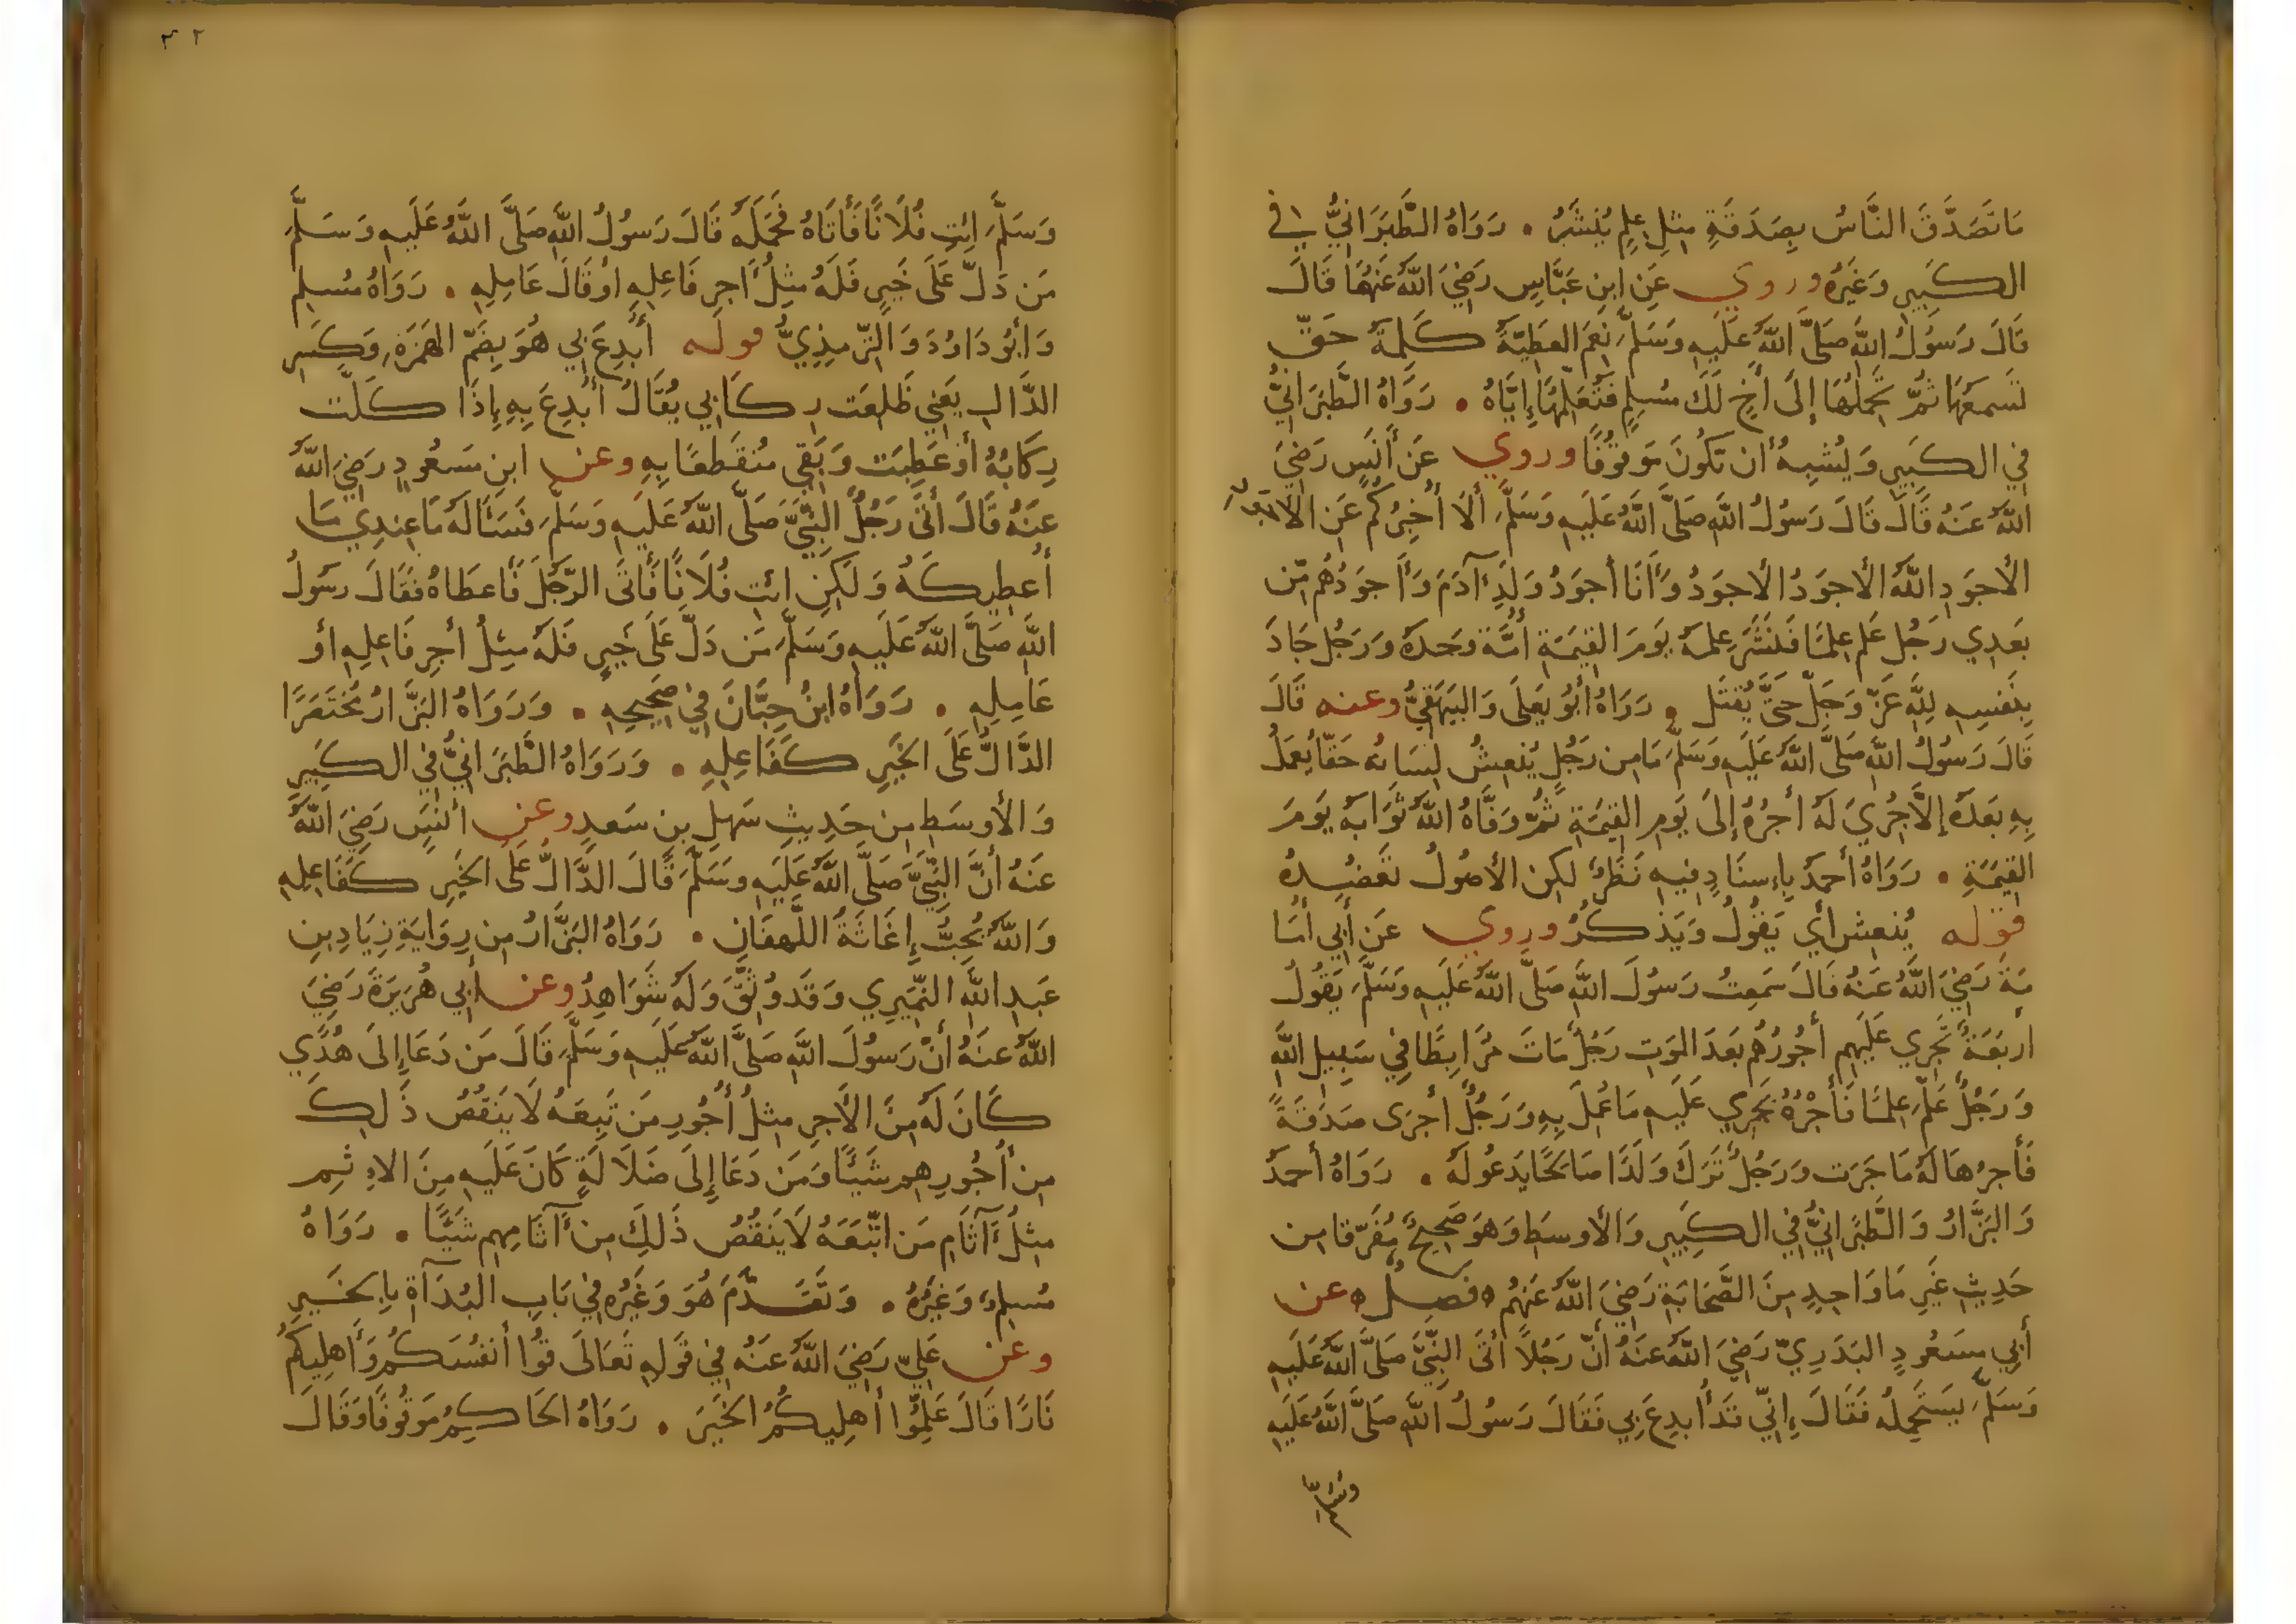 مَا تَصَدَّقَ النَّاسُ بِصَدَقَةٍ مِثْلِ عِلْمٍ يُنْشَرُ . رَوَاهُ الطَّبَرَانِيُّ فِي
الكَبِيرِ وَغَيْرُهُ وروي عَنِ ابنِ عَبَّاسٍ رَضِيَ اللَّهُ عَنْهُمَا قَالَ
قَالَ رَسُولُ اللَّهِ صَلَّى اللَّهُ عَلَيهِ وَسَلَّمَ نِعْمَ العَطِيَّةُ كَلِمَةُ حَقٍّ
تَسمَعُهَا ثُمَّ تَحْمِلُهَا إِلَى أَخٍ لَكَ مُسلِمٍ فَتُعَلِّمُهَا إِيَّاهُ . رَوَاهُ الطَّبَرَانِيُّ
فِي الكَبِيرِ وَيُشْبِهُ أَن تَكُونَ مَوقُوفًا وروي عَن أَنَسٍ رَضِيَ
اللَّهُ عَنْهُ قَالَ قَالَ رَسُولُ اللَّهِ صَلَّى اللَّهُ عَلَيهِ وَسَلَّمَ أَلَا أُخبِرُكُم عَنِ
الأَجوَدِ اللَّهُ الأَجوَدُ الأَجوَدُ وَأَنَا أَجوَدُ وَلَدِ آدَمَ وَأَجوَدُهُم مِّن
بَعدِي رَجُلٌ عَلِمَ عِلمًا فَنَشَرَ عِلمَهُ يَومَ القِيمَةِ أُمَّةً وَحدَهُ وَرَجُل جَادَ
بِنَفسِهِ لِلَّهِ عَزَّ وَجَلَّ حَتَّى يُقتَل . رَوَاهُ أَبُو يَعلَى وَالبَيهَقِيُّ وعنه قَالَ
قَالَ رَسُولُ اللَّهِ صَلَّى اللَّهُ عَلَيهِ وَسَلَّمَ مَا مِن رَجُلٍ يُنعِشُ لِسَانَهُ حَقًّا يُعمَلُ
بِهِ بَعدَهُ إِلَّا جُرِيَ لَهُ أَجرُهُ إِلَى يَومِ القِيمَةِ ثُمَّ وَفَّاهُ اللَّهُ ثَوَابَهُ يَومَ
القِيمَةِ . رَوَاهُ أَحمَدُ بِإِسنَادٍ فِيهِ نَظَرٌ لَكِنِ الأُصُولُ تَعضُدُهُ
قوله يُنعِش أَي يَقُولُ وَيَذكُرُ وروي عَن أَبِي أُمَا
مَةَ رَضِيَ اللَّهُ عَنْهُ قَالَ سَمِعتُ رَسُولَ اللَّهِ صَلَّى اللَّهُ عَلَيهِ وَسَلَّمَ يَقُولُ
أَربَعَةٌ تَجرِي عَلَيهِم أُجُورُهُم بَعدَ المَوتِ رَجُلٌ مَاتَ مُرَابِطًا فِي سَبِيلِ اللَّهِ
وَرَجُلٌ عَلَّمَ عِلمًا فَأَجْرُهُ يَجرِي عَلَيهِ مَا عُمِلَ بِهِ وَرَجُلٌ أَجرَى صَدَقَةً
فَأَجرُهَا لَهُ مَا جَرَت وَرَجُلٌ تَرَكَ وَلَدًا صَالِحًا يَدعُو لَهُ . رَوَاهُ أَحمَدُ
وَالبَزَّارُ وَالطَّبَرَانِيُّ فِي الكَبِيرِ وَالأَوسَطِ وَهوَ صَحِيحٌ مُفَرَّقا مِن
حَدِيثِ غَيرِ مَا وَاحِدٍ مِنَ الصَّحَابَةِ رَضِيَ اللَّهُ عَنهُم فصل عن
أَبِي مَسعُودٍ البَدرِيِّ رَضِيَ اللَّهُ عَنهُ أَنَّ رَجُلًا أَتَى النَّبِيَّ صَلَّى اللَّهُ عَلَيهِ
وَسَلَّمَ يَستَحمِلُهُ فَقَالَ إِنِّي قَد أُبدِعَ بِي فَقَالَ رَسُولُ اللَّهِ صَلَّى اللَّهُ عَلَيهِ
وَسَلَّمَ
٣٢
وَسَلَّمَ ائتِ فُلَانًا فَأَتَاهُ فَحَمَلَهُ قَالَ رَسُولُ اللَّهِ صَلَّى اللَّهُ عَلَيهِ وَسَلَّمَ
مَن دَلَّ عَلَى خَيرٍ فَلَهُ مِثلُ أَجرِ فَاعِلِهِ أَو قَالَ عَامِلِهِ . رَوَاهُ مُسلِم
وَأَبُو دَاوُدَ وَالتِّرمِذِيُّ قوله أُبدِعَ بِي هُوَ بِضَمِّ الهَمزَةِ وَكَسرِ
الدَّالِ يَعنِي ظَلَعَت رِكَابِي يُقَالُ أُبدِعَ بِهِ إِذَا كَلَّت
رِكَابُهُ أَو عَطِبَت وَبَقِيَ مُنقَطِعًا بِهِ وعن ابنِ مَسعُودٍ رَضِيَ اللَّهُ
عَنهُ قَالَ أَتَى رَجُلٌ النَّبِيَّ صَلَّى اللَّهُ عَلَيهِ وَسَلَّمَ فَسَأَلَهُ مَا عِندِي مَا
أُعطِيكَهُ وَلَكِنِ ائتِ فُلَانًا فَأَتَى الرَّجُلَ فَأَعطَاهُ فَقَالَ رَسُولُ
اللَّهِ صَلَّى اللَّهُ عَلَيهِ وَسَلَّمَ مَن دَلَّ عَلَى خَيرٍ فَلَهُ مِثلُ أَجرِ فَاعِلِهِ أَو
عَامِلِهِ . رَوَاهُ ابنُ حِبَّانَ فِي صَحِيحِهِ . وَرَوَاهُ البَزَّارُ مُختَصَرًا
الدَّالُّ عَلَى الخَيرِ كَفَاعِلِهِ . وَرَوَاهُ الطَّبَرَانِيُّ فِي الكَبِيرِ
وَالأَوسَطِ مِن حَدِيثِ سَهلِ بنِ سَعدٍ وعن أَنَسٍ رَضِيَ اللَّهُ
عَنهُ أَنَّ النَّبِيَّ صَلَّى اللَّهُ عَلَيهِ وَسَلَّمَ قَالَ الدَّالُّ عَلَى الخَيرِ كَفَاعِلِهِ
وَاللَّهُ يُحِبُّ إِغَاثَةَ اللَّهفَانِ . رَوَاهُ البَزَّارُ مِن رِوَايَةِ زِيَادِ بنِ
عَبدِ اللَّهِ النُّمَيرِي وَقَد وُثِّقَ وَلَهُ شَوَاهِدُ وعن أَبِي هُرَيرَةَ رَضِيَ
اللَّهُ عَنهُ أَنَّ رَسُولَ اللَّهِ صَلَّى اللَّهُ عَلَيهِ وَسَلَّمَ قَالَ مَن دَعَا إِلَى هُدًي
كَانَ لَهُ مِنَ الأَجرِ مِثلُ أُجُورِ مَن تَبِعَهُ لَا يَنقُصُ ذَلِكَ
مِن أُجُورِهِم شَيئًا وَمَن دَعَا إِلَى ضَلَالَةٍ كَانَ عَلَيهِ مِنَ الإِثمِ
مِثلُ آثَامِ مَن اتَّبَعَهُ لَا يَنقُصُ ذَلِكَ مِن آثَامِهِم شَيئًا . رَوَاهُ
مُسلِمٌ وَغَيرُهُ . وَتَقَدَّمَ هُوَ وَغَيرُه فِي بَابِ البُدَآةِ بِالخَيرِ
وعن عَلِيٍّ رَضِيَ اللَّهُ عَنهُ فِي قَولِهِ تَعَالَى قُوا أَنفُسَكُم وَأَهلِيكُم
نَارًا قَالَ عَلِّمُوا أَهلِيكُمُ الخَيرَ . رَوَاهُ الحَاكِمُ مَوقُوفًا وَقَالَ